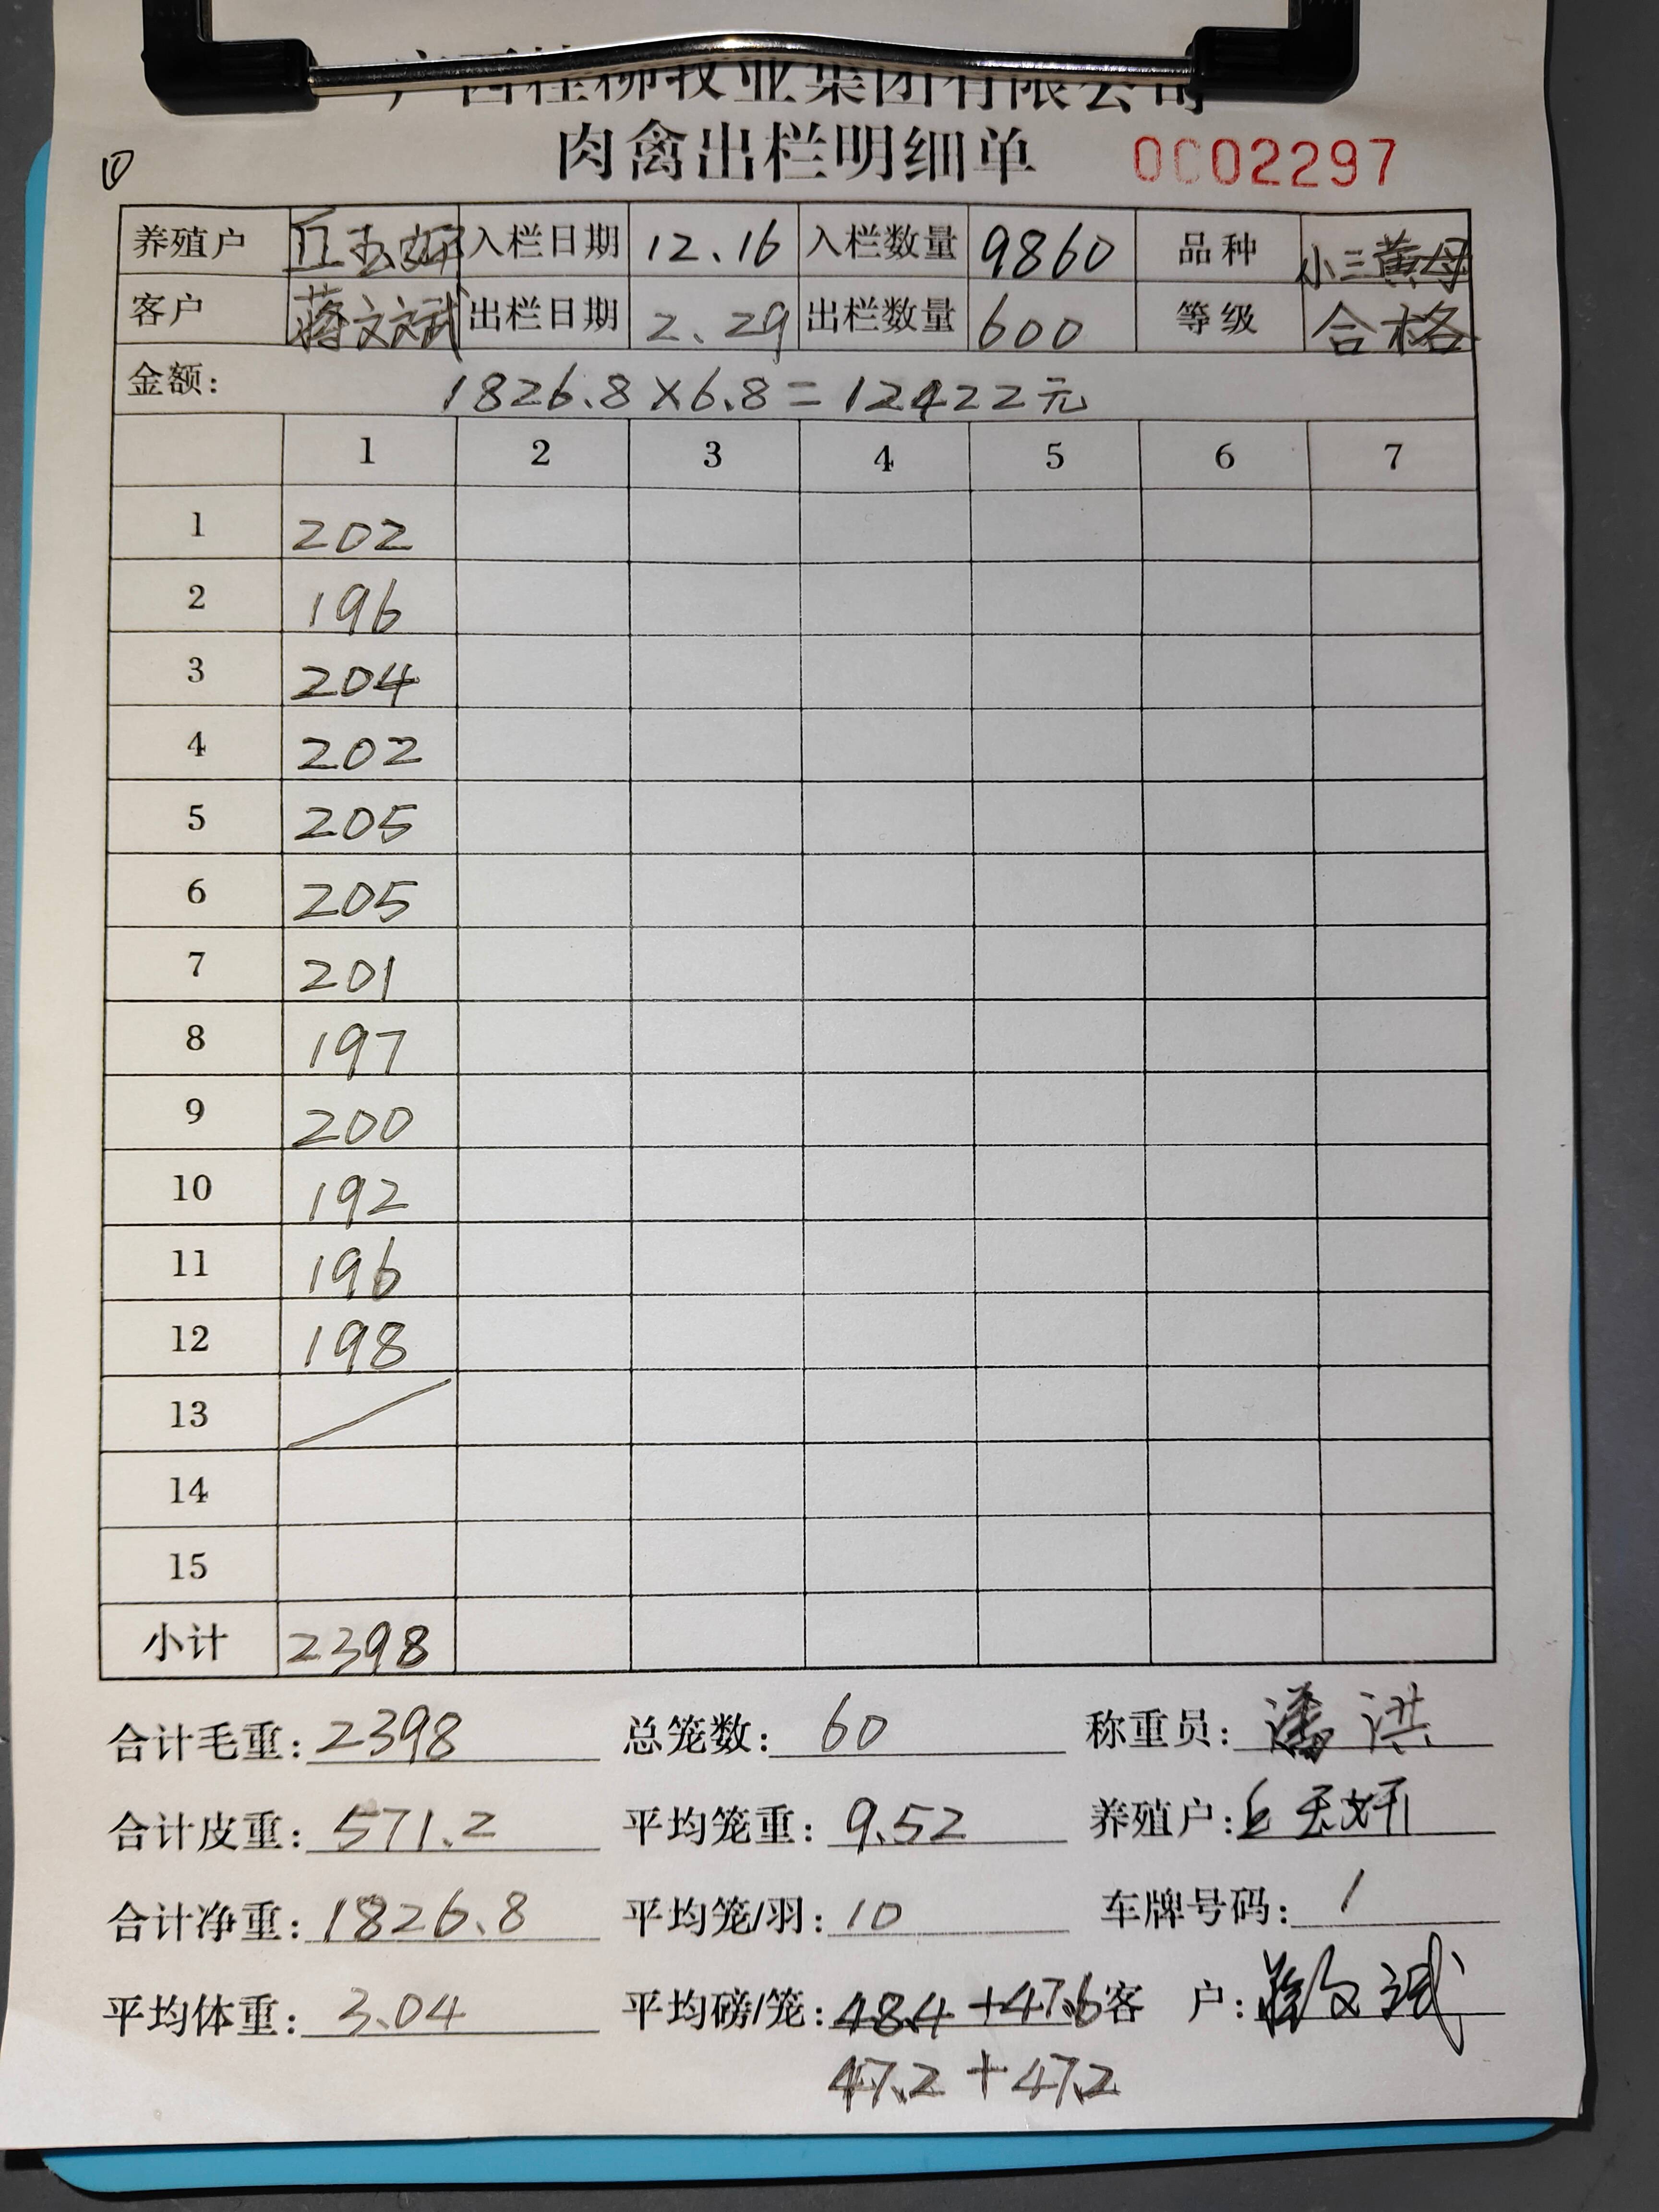 广西桂柳牧业集团有限公司
肉禽出栏明细单 0002297
①
养殖户 丘玉妍 入栏日期 12.16 入栏数量 9860 品种 小三黄母
客户 蒋文斌 出栏日期 2.29 出栏数量 600 等级 合格
金额: 1826.8×6.8=12422元
1 2 3 4 5 6 7
1 202
2 196
3 204
4 202
5 205
6 205
7 201
8 197
9 200
10 192
11 196
12 198
13
14
15
小计 2398
合计毛重: 2398 总笼数: 60 称重员: 潘洪
合计皮重: 571.2 平均笼重: 9.52 养殖户:
合计净重: 1826.8 平均笼/羽: 10 车牌号码: /
平均体重: 3.04 平均磅/笼: 48.4+47.6 客户: 蒋文斌
47.2+47.2